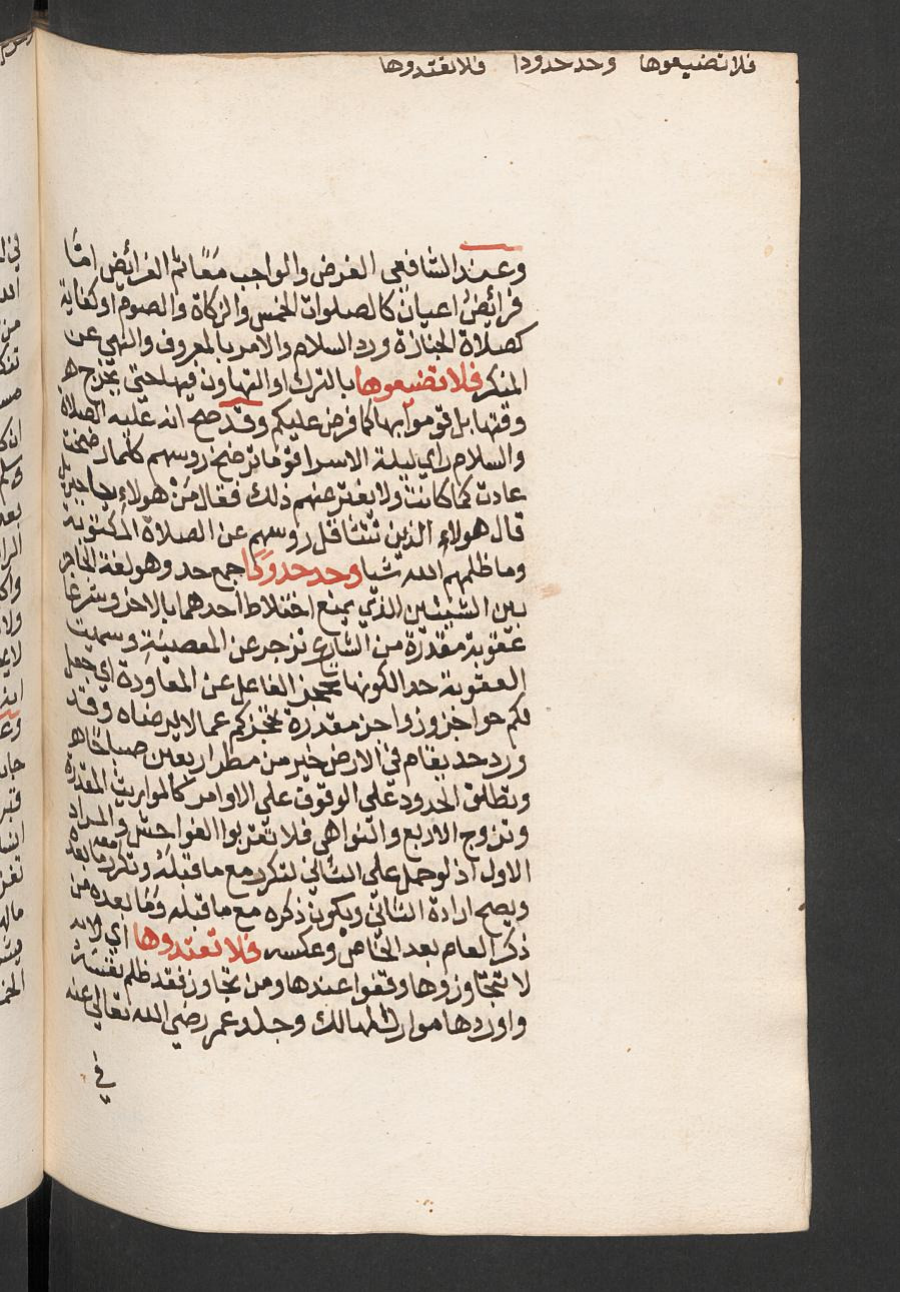 فلا تضيعوها وحد حدودا فلا تعتدوها
وعند الشافعي الفرض والواجب معًا ثم الفرائض امّا
فرائضُ اعيان كالصلوات الخمس والزكاة والصوم او كفاية
كصلاة الجنازة ورد السلام والامر بالمعروف والنهي عن
المنكر فلا تضيعوها بالترك او التهاون فيها حتى يخرج
وقتها بل قوموا بها كما فرض عليكم وقد صح انه عليه الصلاة
والسلام راي ليلة الاسرا قوما ترضخ روسهم كلما رضخت
عادت كما كانت ولا يفتر عنهم ذلك فقال مَنْ هولاءِ يا جبريل
قال هولاءِ الذين تتثاقل روسهم عن الصلاة المكتوبة
وما ظلمهم الله شيا وحد حدودًا جمع حد وهو لغة الحاجز
بين الشيئين الذي يمنع اختلاط احدهما بالاخر وشرعا
عقوبة مقدرة من الشارع تزجر عن المعصية وسميت
العقوبة حدا لكونها تحجز الفاعل عن المعاودة اي جعل
لكم حواجز وزواجر مقدرة تحجزكم عما لا يرضاه وقد
ورد حد يقام في الارض خير من مطر اربعين صباحا
وتطلق الحدود على الوقوف على الاوامر كالمواريث المقدرة
وتزوج الاربع والنواهي فلا تقربوا الفواحش والمراد
الاول اذ لو حمل على الثاني لتكرر مع ما قبله وتكرر ما بعده
ويصح ارادة الثاني ويكون ذكره مع ما قبله وما بعده من
ذكر العام بعد الخاص وعكسه فلا تعتدوها اي
لا تتجاوزوها وقفوا عندها ومن تجاوز فقد ظلم نفسه
واوردها موارد المهالك وجلد عمر رضي الله تعالى عنه
في